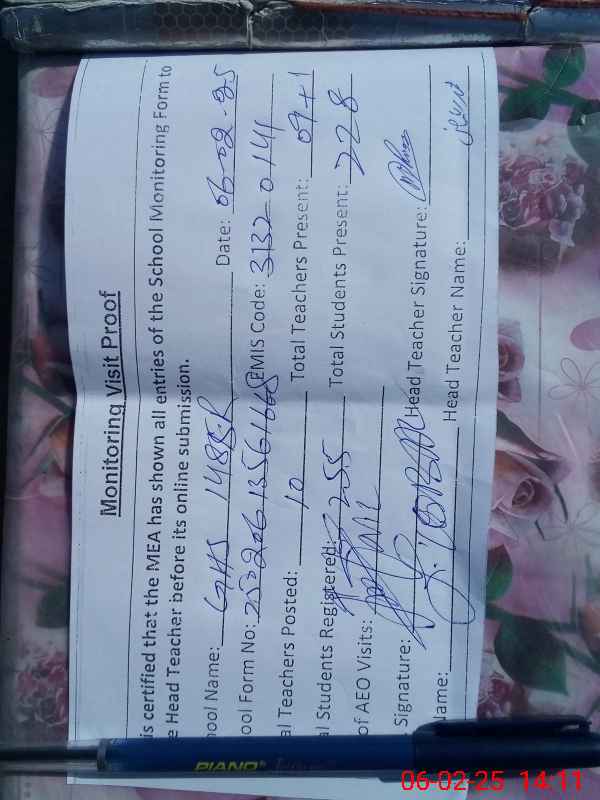 Monitoring Visit Proof
is certified that the MEA has shown all entries of the School Monitoring Form to
e Head Teacher before its online submission.
ool Name: GHS 148 Date: 06-02-25
ool Form No: EMIS Code: 31320141
al Teachers Posted: 10 Total Teachers Present: 09+1
al Students Registered: 255 Total Students Present: 228
of AEO Visits: NIL
Signature: Head Teacher Signature:
Name: Head Teacher Name:
PIANO
06-02-25 14:11